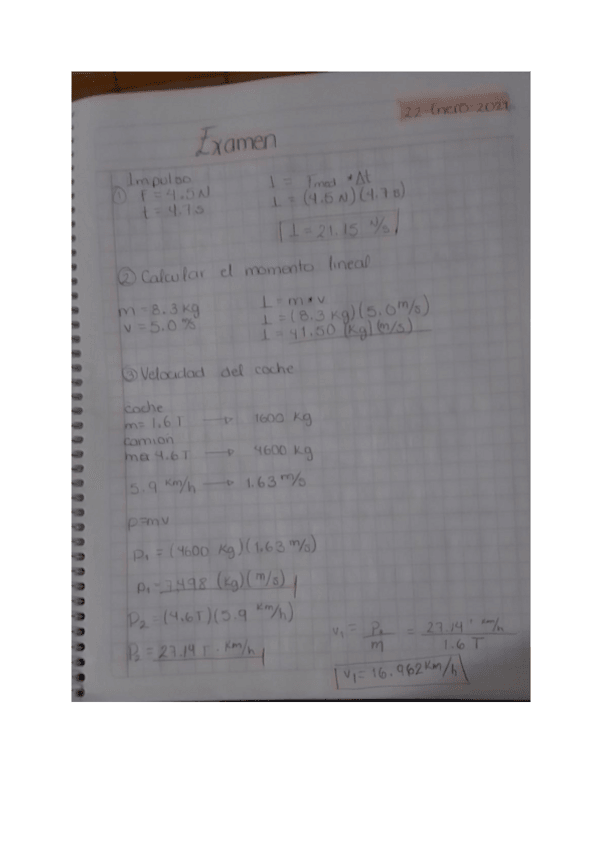 22-Enero-2021
Examen
Impulso
① F = 4.5N
t = 4.7s
I = Fmed • Δt
I = (4.5 N)(4.7s)
I = 21.15 N/s
② Calcular el momento lineal
m = 8.3 kg
v = 5.0 m/s
I = m•v
I = (8.3 kg)(5.0 m/s)
I = 41.50 (kg)(m/s)
③ Velocidad del coche
coche
m = 1.6 T → 1600 kg
camion
m= 4.6 T → 4600 kg
5.9 Km/h → 1.63 m/s
p=mv
p₁ = (4600 kg)(1.63 m/s)
p₁ = 7498 (kg)(m/s)
P₂ = (4.6T)(5.9 km/h)
P₂ = 27.14 T · km/h
v₁ = P₂/m = 27.14 T km/h / 1.6 T
v₁ = 16.962 Km/h